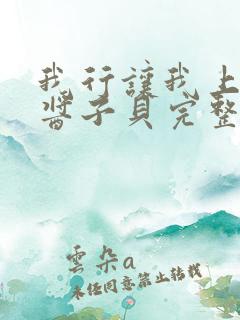 我行讓我上
醬子貝完整
雲朵a
未经同意禁止转载